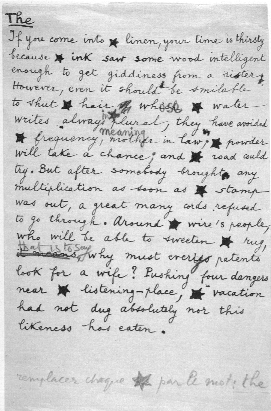 The
If you come into ★ linen, your time is thirsty
because ★ ink saw some wood intelligent
enough to get giddiness from a sister.
However, even it should be smilable
to shut ★ hair whose ★ water
writes always plural, they have avoided
meaning
★ frequency, mother in law; ★ powder
will take a chance; and ★ road could
try. But after somebody brought any
multiplication as soon as ★ stamp
was out, a great many cords refused
to go through. Around ★ wire's people,
who will be able to sweeten ★ rug,
that is to say
why must every patents
look for a wife? Pushing four dangers
near ★ listening-place, ★ vacation
had not dug absolutely nor this
likeness has eaten.
remplacer chaque ★ par le mot: the